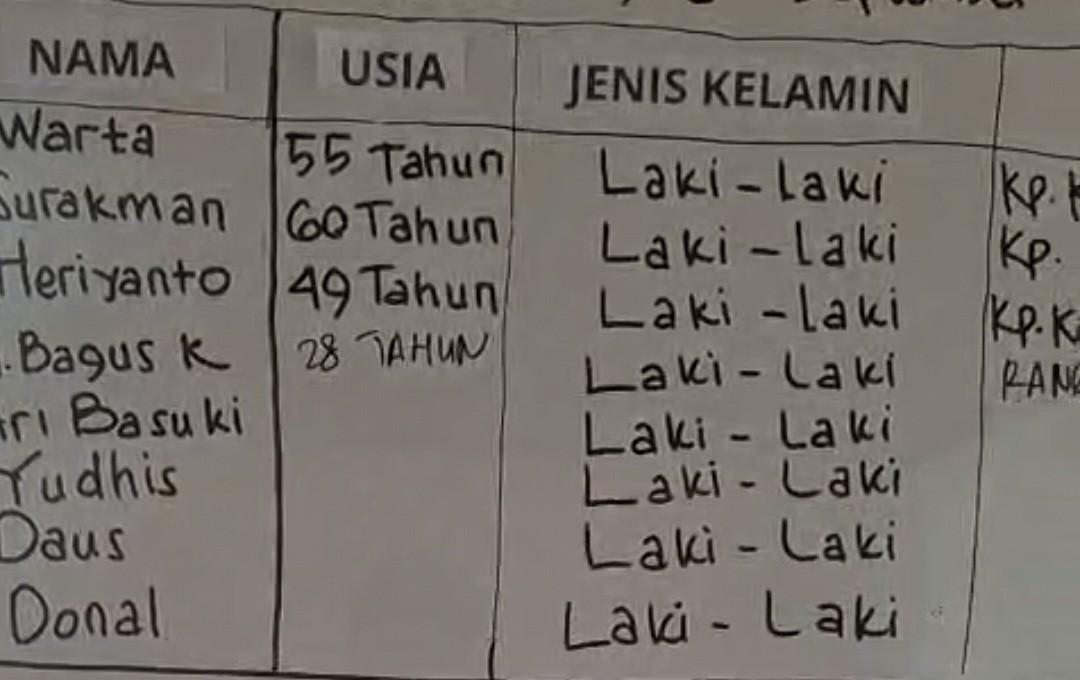 NAMA USIA JENIS KELAMIN
Warta 55 Tahun Laki - Laki Kp.
Surakman 60 Tahun Laki - laki Kp.
Heriyanto 49 Tahun Laki - laki Kp.
Bagus K 28 TAHUN Laki - Laki
Basuki Laki - Laki
Yudhis Laki - Laki
Daus Laki - Laki
Donal Laki - Laki